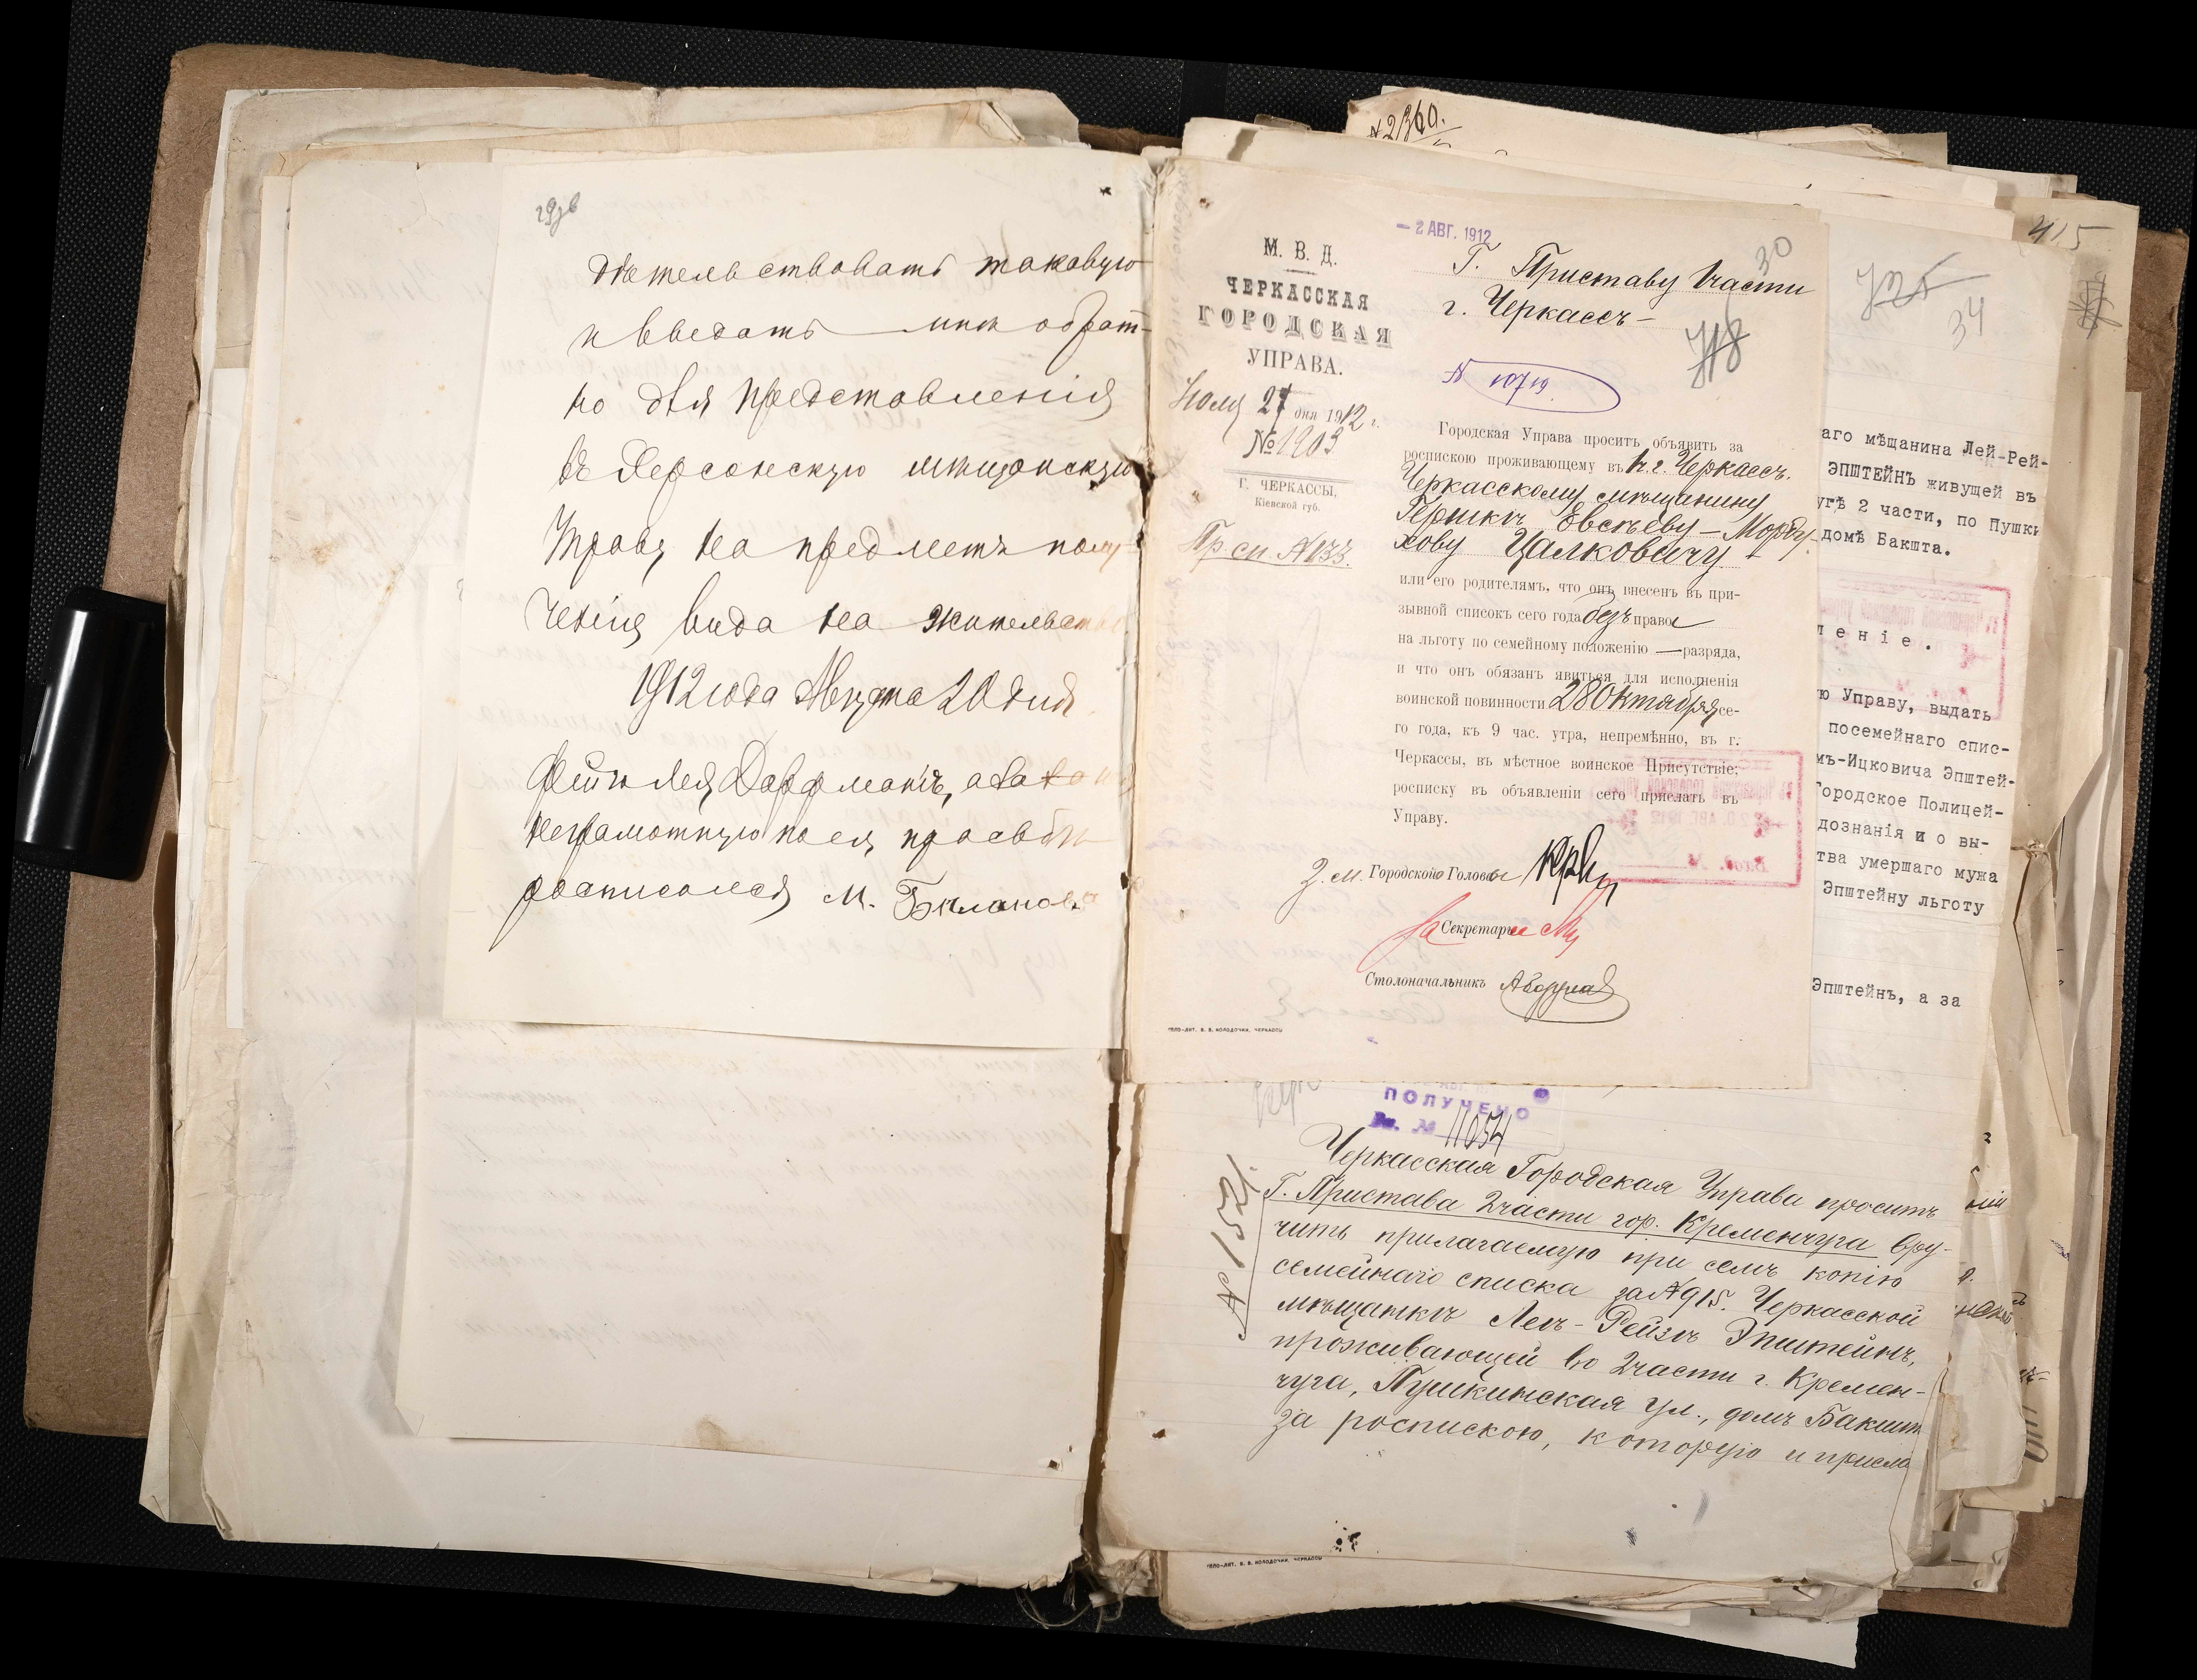 29 об
дѣтельствовать таковую
и введать мнѣ обрат-
но для представленія
въ Херсонскую мѣщанскую
Управу на предметъ полу-
ченія вида на жительство
1912 года Августа 20 дня
Фейга Лея Дорфманъ, а за
неграмотную по ея просьбѣ
росписался М. Билановъ
№ 2360.
М. В. Д.
ЧЕРКАССКАЯ
ГОРОДСКАЯ
УПРАВА.
Іюля 27 дня 1912 г.
№ 1903
Г. ЧЕРКАССЫ,
Кіевской губ.
Пр. сп. № 133.
— 2 АВГ. 1912
30
Г. Приставу 1 части
г. Черкассъ —
718
№ 10719.
Городская Управа проситъ объявить за
роспискою проживающему въ 1 ч. г. Черкассъ.
Черкасскому мѣщанину
Гершкѣ Овсѣеву — Морду-
ховву Цалковичу
или его родителямъ, что онъ внесенъ въ при-
зывной списокъ сего года безъ права
на льготу по семейному положенію — разряда,
и что онъ обязанъ явиться для исполненія
воинской повинности 28 Октября се-
го года, къ 9 час. утра, непремѣнно, въ г.
Черкассы, въ мѣстное воинское Присутствіе;
росписку въ объявленіи сего прислать въ
Управу.
З. м. Городского Головы
За Секретаря
Столоначальникъ
ТИПО-ЛИТ. В. В. КОЛОДОЧКИ, ЧЕРКАССЫ
415
725
34
аго мѣщанина Лей-Рей-
ЭПШТЕЙНЪ живущей въ
угѣ 2 части, по Пушки
домѣ Бакшта.
л е н і е .
ю Управу, выдать
посемейнаго спис-
мъ-Ицковича Эпштей-
Городское Полицей-
дознанія и о вы-
тва умершаго мужа
Эпштейну льготу
Эпштейнъ, а за
ПОЛУЧЕНО
Вх. № 11054
№ 1521.
Черкасская Городская Управа проситъ
Г. Пристава 2 части гор. Кременчуга вру-
чить прилагаемую при семъ копію
семейнаго списка за № 915. Черкасской
мѣщанкѣ Леѣ-Рейзѣ Эпштейнъ,
проживающей во 2 части г. Кремен-
чуга, Пушкинская ул., домъ Бакшт
за роспискою, которую и присла
ТИПО-ЛИТ. В. В. КОЛОДОЧКИ, ЧЕРКАССЫ